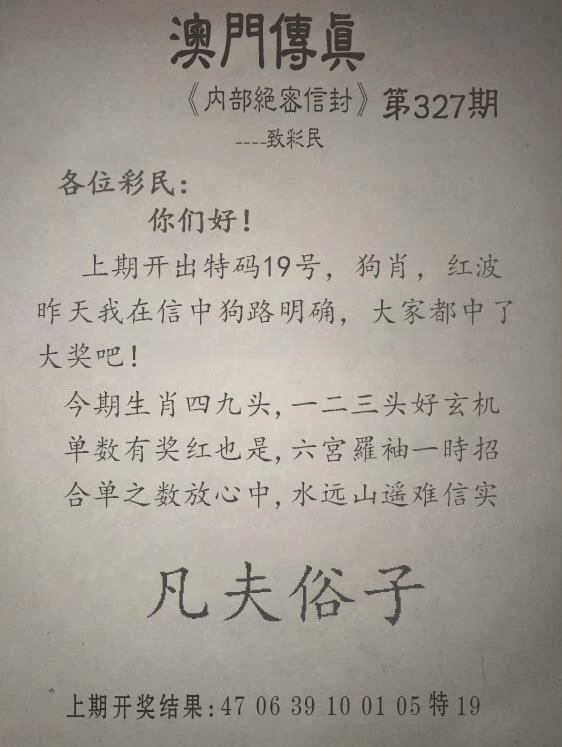 澳門傳眞
《内部絕密信封》第327期
----致彩民
各位彩民:
你们好!
上期开出特码19号, 狗肖, 红波
昨天我在信中狗路明确, 大家都中了
大奖吧!
今期生肖四九头,一二三头好玄机
单数有奖红也是,六宫羅袖一時招
合单之数放心中,水远山遥难信实
凡夫俗子
上期开奖结果:47 06 39 10 01 05 特 19